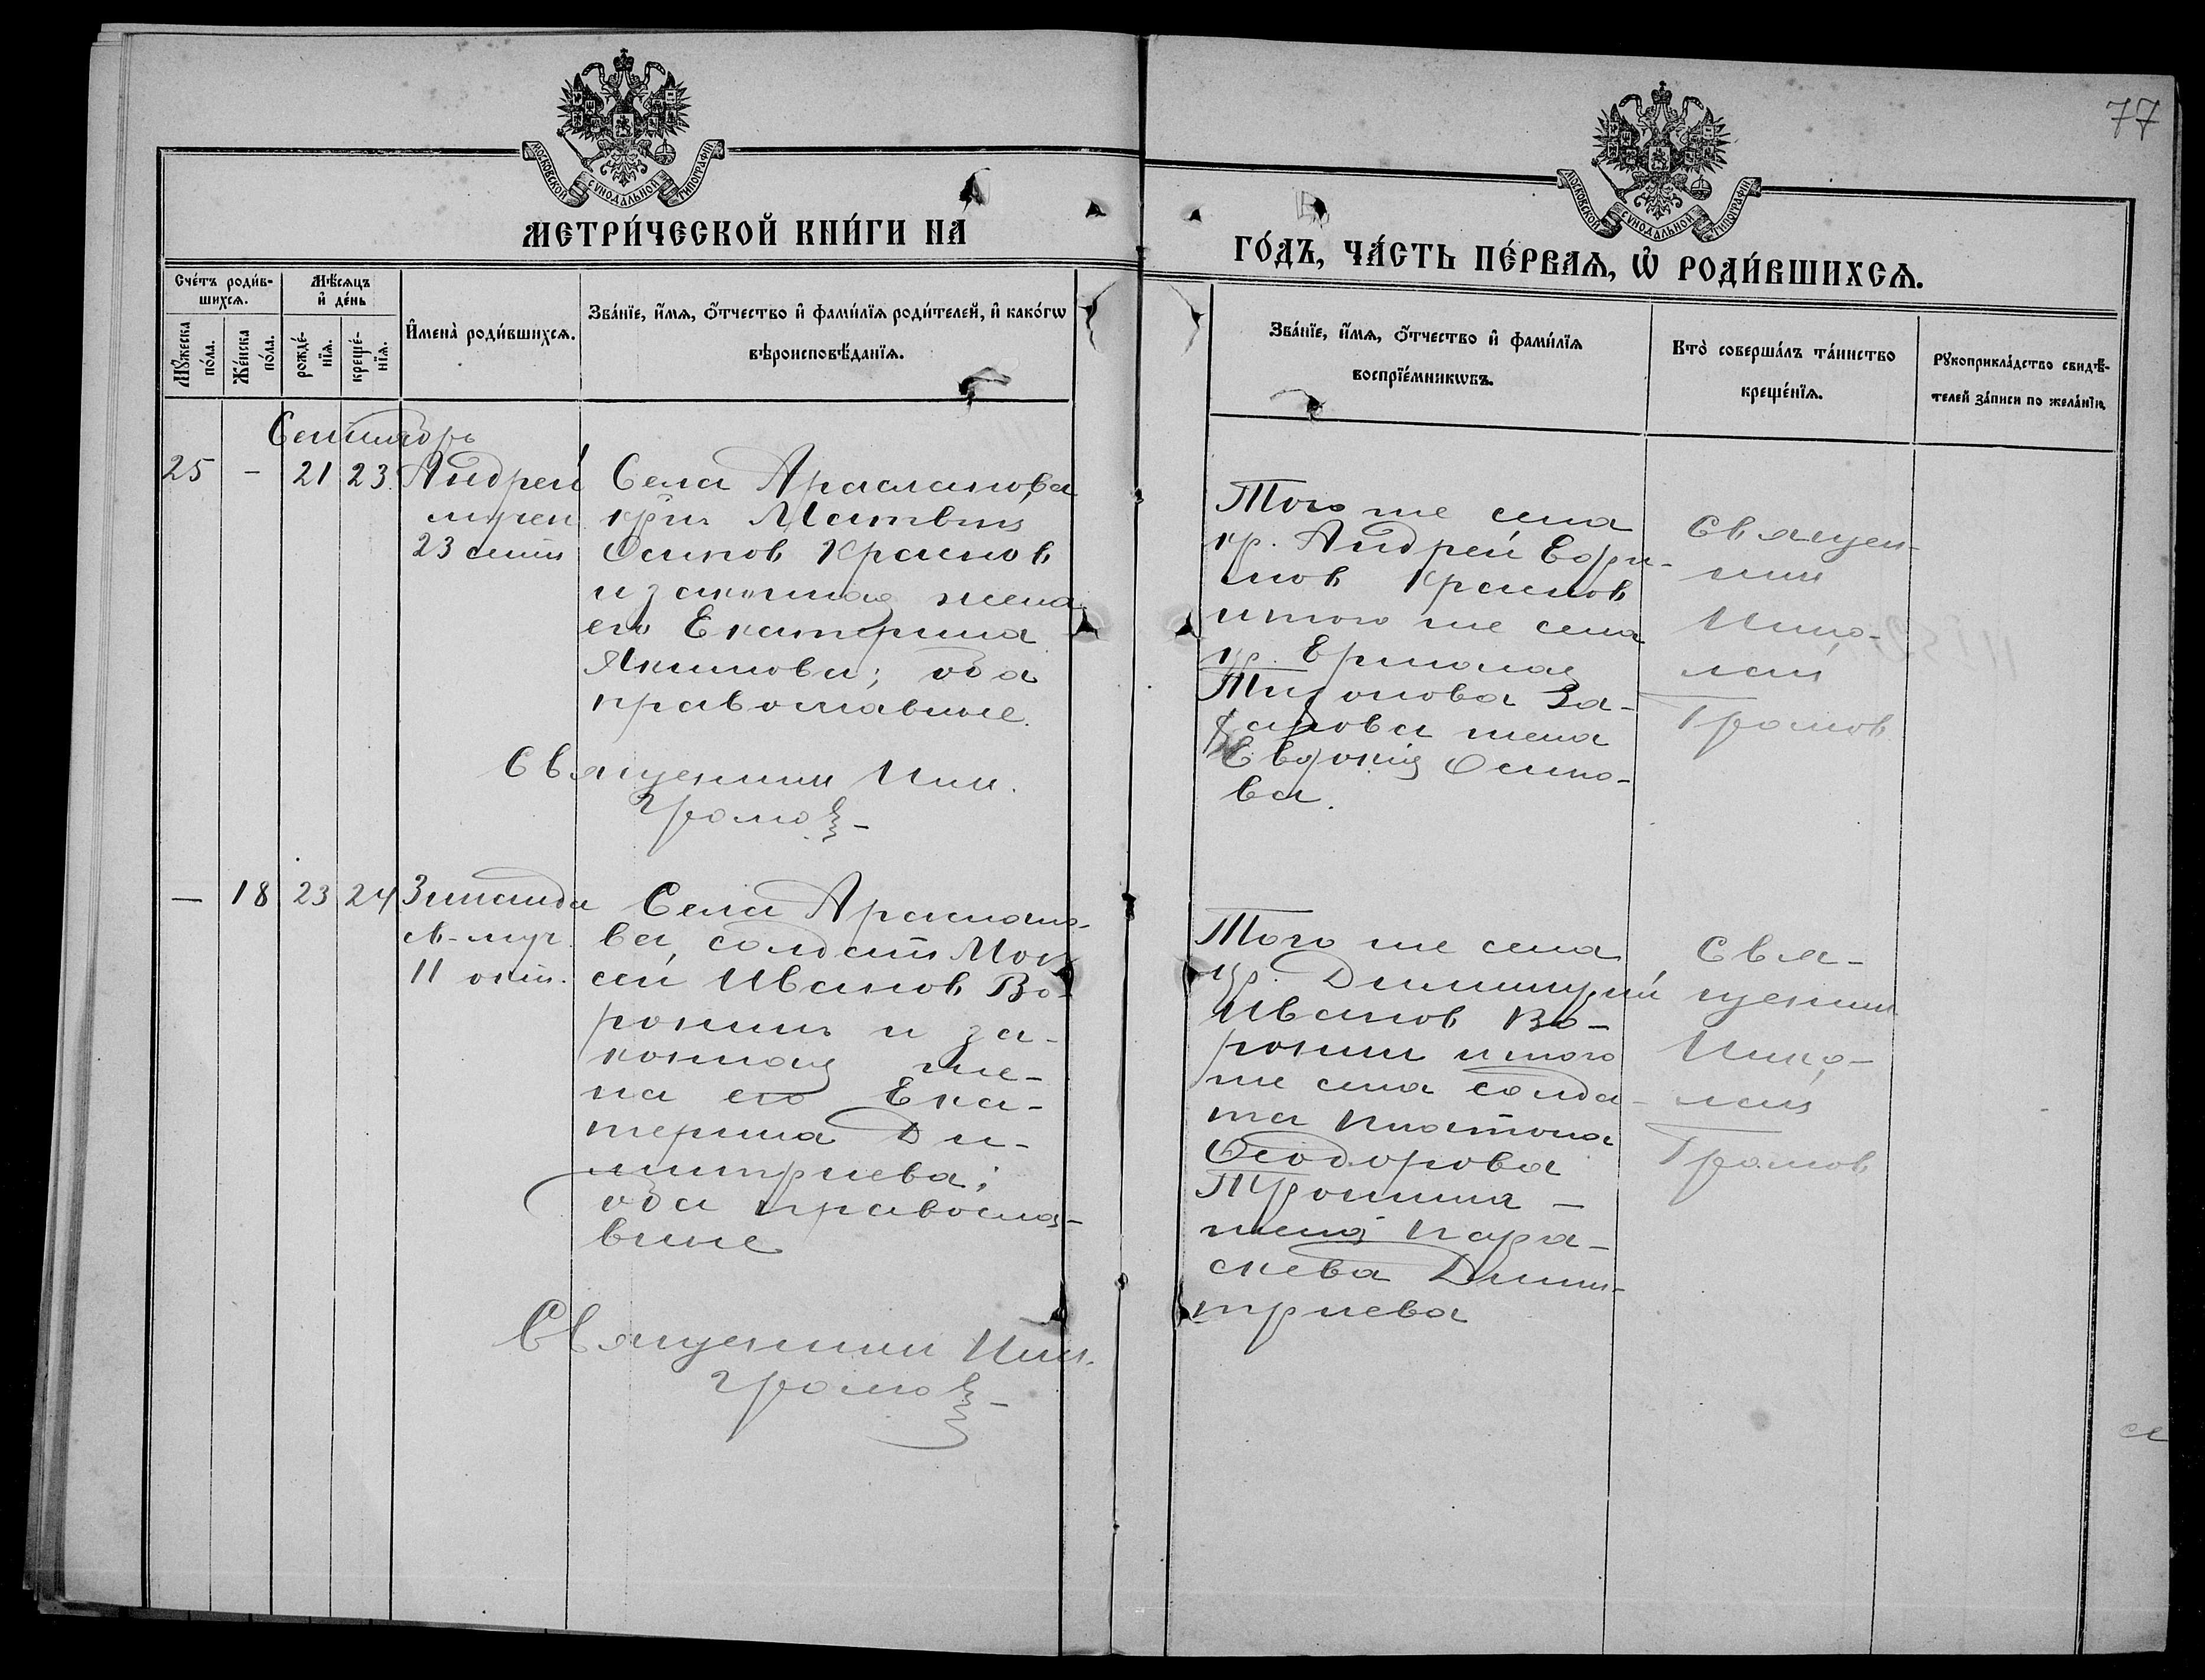 77
МОСКОВСКОЙ СѴНОДАЛЬНОЙ ТИПОГРАФІИ
МОСКОВСКОЙ СѴНОДАЛЬНОЙ ТИПОГРАФІИ
МЕТРИ́ЧЕСКОЙ КНИ́ГИ НА
ГО́ДЪ, ЧА́СТЬ ПЕ́РВАѦ, Ѡ҆ РОДИ́ВШИХСѦ.
Сче́тъ роди́в-
шихсѧ.
Мꙋжеска по́ла.
Же́нска по́ла.
Мѣ́сѧцъ
и҆ де́нь
рожде́-
нїѧ.
креще́-
нїѧ.
И҆мена̀ роди́вшихсѧ.
Зва́нїе, и҆́мѧ, ѻ҆́тчество и҆ фами́лїѧ роди́телей, и҆ како́гѡ
вѣроисповѣ́данїѧ.
Зва́нїе, и҆́мѧ, ѻ҆́тчество и҆ фами́лїѧ
воспрїе́мникѡвъ.
Кто̀ соверша́лъ та́инство
креще́нїѧ.
Рꙋкоприкла́дство свидѣ́-
телей за́писи по жела́нїю
Сентябрь
25 - 21 23 Андрей
мучен
23 сент
Села Арасланова
кр-нъ Матвей
Осипов Краснов
и законная жена
его Екатерина
Якимова; оба
православные.
Священник Ник.
Громов
Того же села
кр. Андрей Ефи-
мов Краснов
и того же села
кр. Ермолая
Тихонова За-
жена
Евдокия Осипо-
ва.
Священ-
ник
Нико-
лай
Громов
— 18 23 24 Зинаида
м-муч.
11 окт.
Села Араслано-
ва, солдат Мои
сей Иванов Во-
ронин и за-
конная же-
на его Ека-
терина Ди-
митриева;
оба правосла-
вные
Священник Ник.
Громов
Того же села
кр. Димитрий
Иванов Во-
ронин и того
же села солда-
та Платона
Феодорова
Тронина —
жена Пара-
скева Дими-
триева
Свя-
щенник
Нико-
лай
Громов